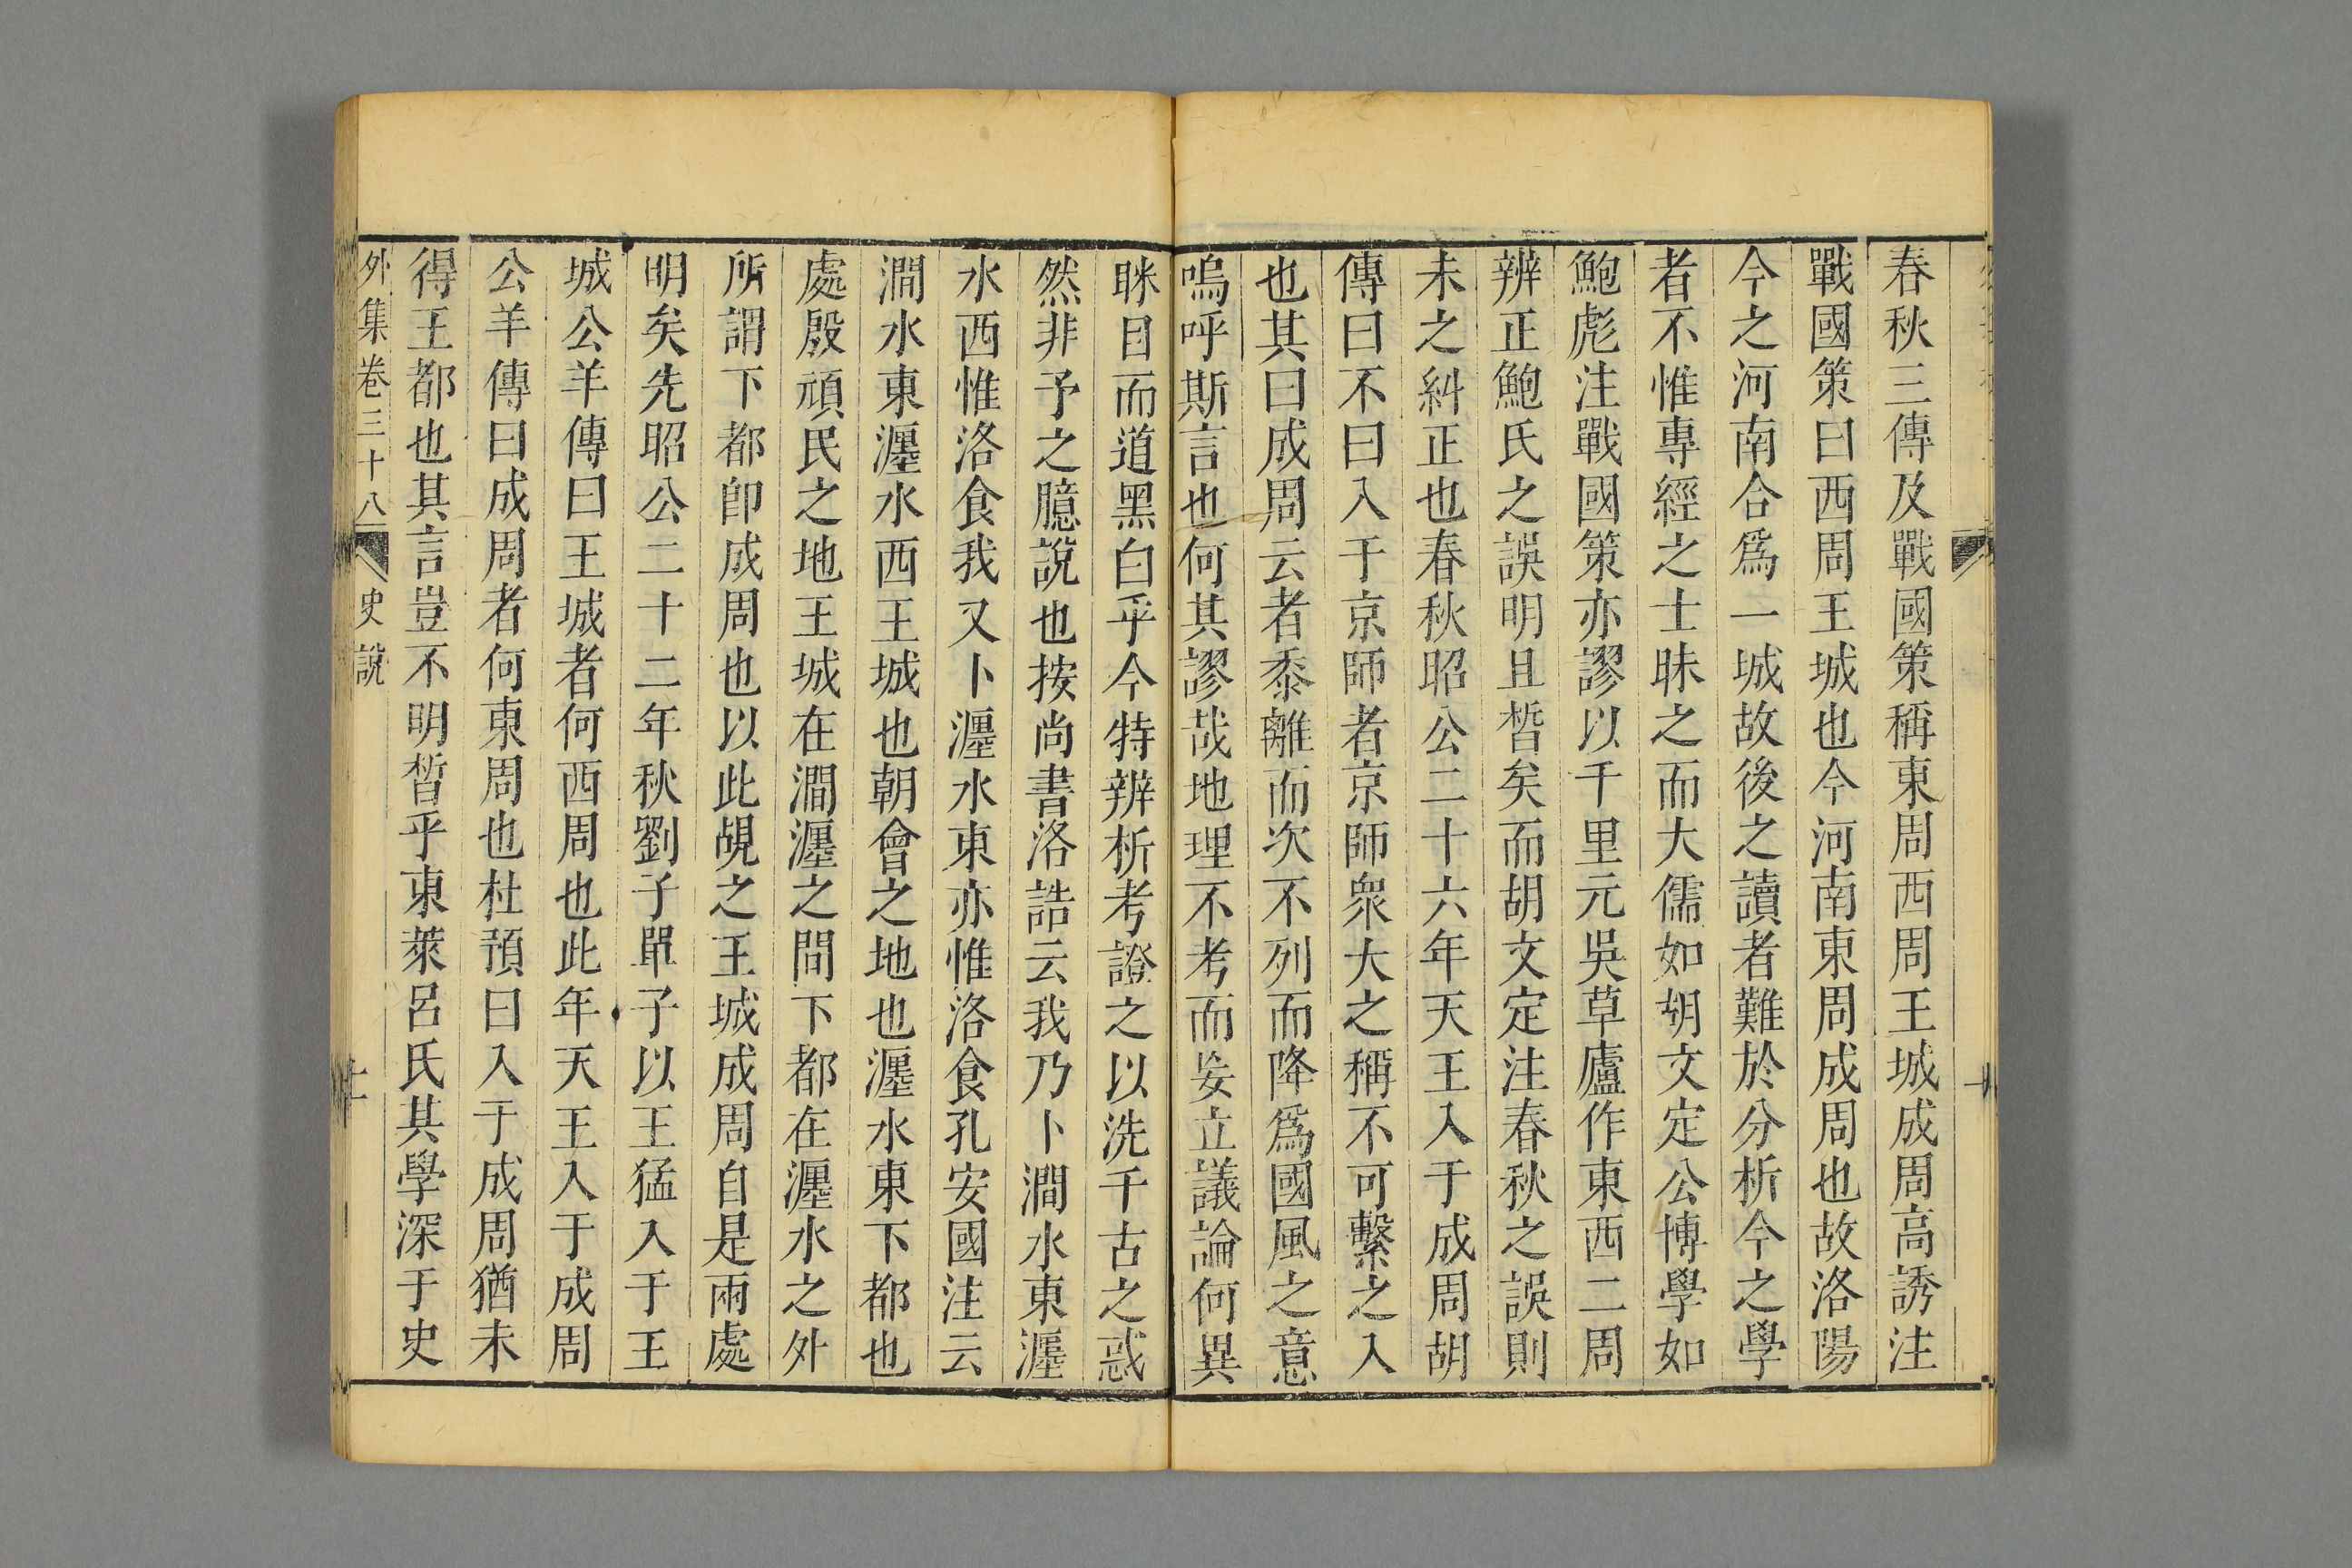 春秋三傳及戰國策稱東周西周王城成周高誘注
戰國策曰西周王城也今河南東周成周也故洛陽
今之河南合爲一城故後之讀者難於分析今之學
者不惟專經之士昧之而大儒如胡文定公博學如
鮑彪注戰國策亦謬以千里元吳草廬作東西二周
辨正鮑氏之誤明且晳矣而胡文定注春秋之誤則
未之糾正也春秋昭公二十六年天王入于成周胡
傳曰不曰入于京師者京師衆大之稱不可繫之入
也其曰成周云者黍離而次不列而降爲國風之意
嗚呼斯言也何其謬哉地理不考而妄立議論何異
眯目而道黑白乎今特辨析考證之以洗千古之惑
然非予之臆說也按尚書洛誥云我乃卜澗水東瀍
水西惟洛食我又卜瀍水東亦惟洛食孔安國注云
澗水東瀍水西王城也朝會之地也瀍水東下都也
處殷頑民之地王城在澗瀍之間下都在瀍水之外
所謂下都卽成周也以此覘之王城成周自是兩處
明矣先昭公二十二年秋劉子單子以王猛入于王
城公羊傳曰王城者何西周也此年天王入于成周
公羊傳曰成周者何東周也杜預曰入于成周猶未
得王都也其言豈不明晳乎東萊呂氏其學深于史
外集卷三十八 史說